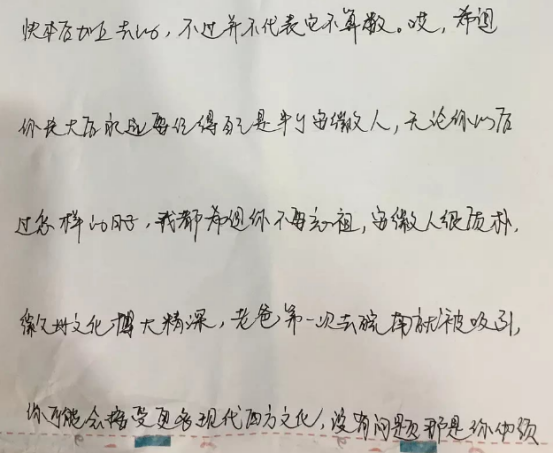 快本后加上去的，不过并不代表它不算数。哎，希望
你长大后永远要记得自己是半个安徽人，无论你以后
过怎样的日子，我都希望你不要忘祖，安徽人很质朴，
徽州文化博大精深，老爸第一次去皖南就被吸引，
你可能会接受更多现代西方文化，没有问题那是你必须